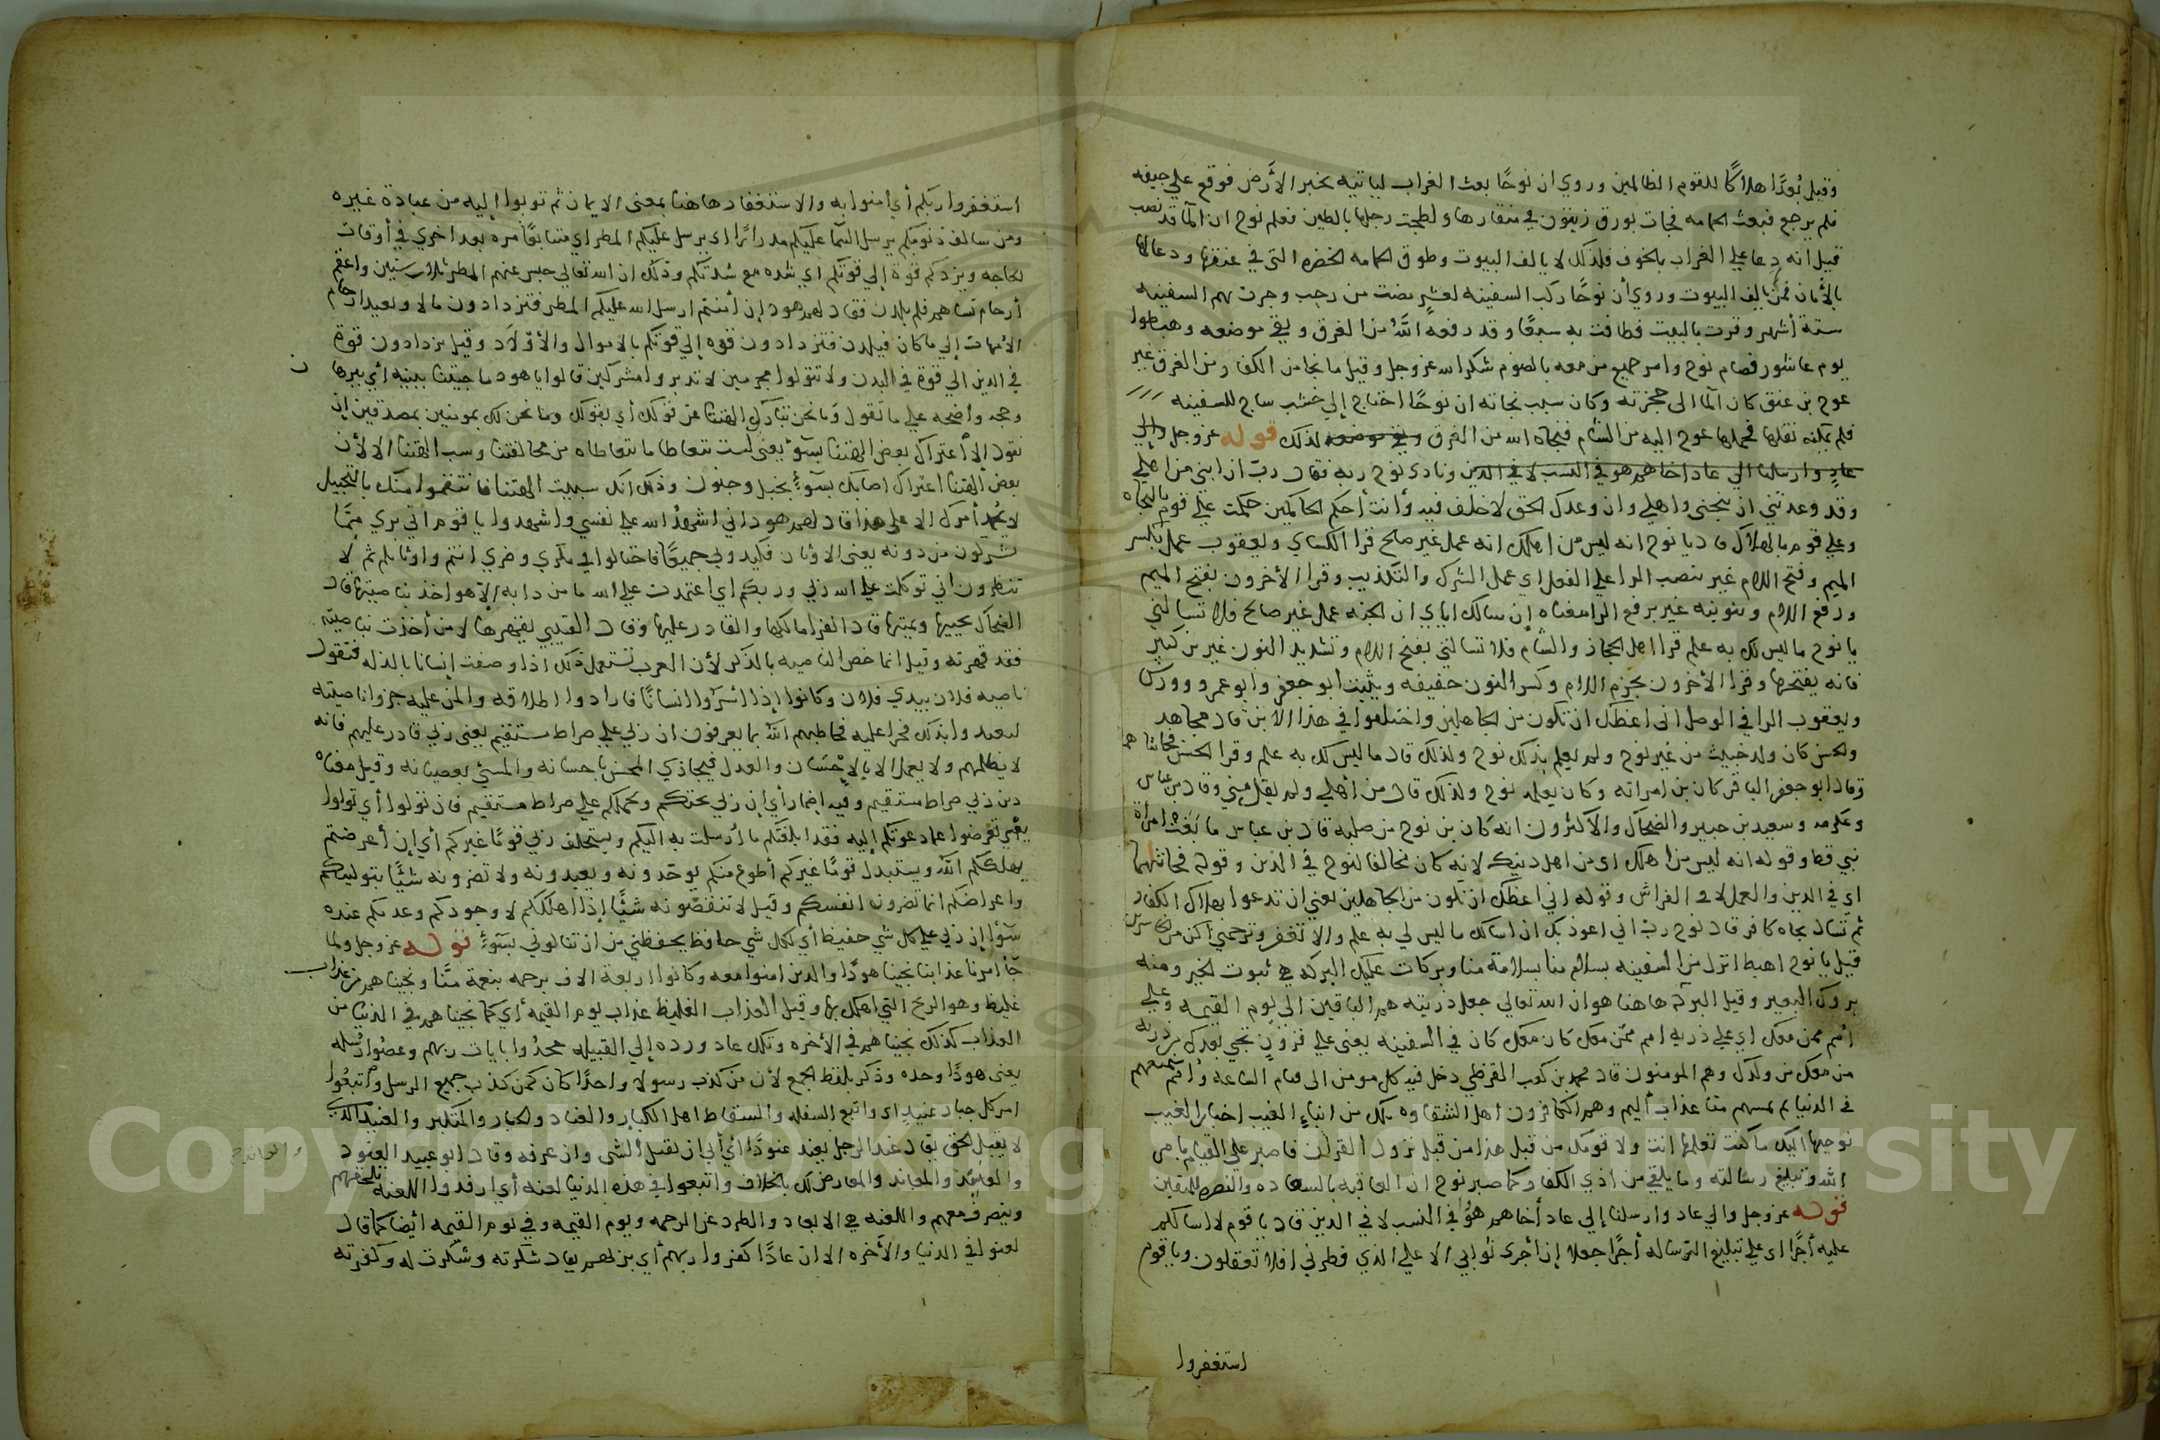 وقيل بُعدًا هلاكًا للقوم الظالمين وروي ان نوحًا بعث الغراب لياتيه بخبر الأرض فوقع علي جيفه
فلم يرجع فبعث الحامه فجات بورق زيتون في منقارها ولطخت رجلها بالطين فعلم نوح ان الما قد نضب
قيل انه دعا علي الغراب بالخوف فلذلك لا يالف البيوت وطوق الحامه الخضره التي في عنقها ودعا لها
بالأمان فمن ثم يالف البيوت وروي أن نوحًا ركب السفينه لعشر مضت من رجب وجرت بهم السفينه
ستة أشهر ومرت بالبيت فطافت به سبعًا وقد رفعه الله من الغرق وبقي موضعه وهبطوا
يوم عاشور فصام نوح وامر جميع من معه بالصوم شكرا لله عز وجل وقيل ما نجا من الكفار من الغرق غير
عوج بن عنق كان الما الى حجزته وكان سبب نجاته ان نوحًا احتاج إلي خشب ساج للسفينه
فلم يمكنه نقلها فحملها عوج اليه من الشام فنجاه الله من الغرق وبقي موضعه لذلك قوله عز وجل وإلي
عادٍ وارسلنا الي عاد اخاهم هو في النسب لا في الدين ونادى نوح ربه فقال ربّ ان ابني من اهلي
وقد وعدتني ان تنجني واهلي وان وعدك الحق لا خلف فيه وأنت أحكم الحاكمين حكمت علي قوم بالنجاه
وعلي قوم بالهلاك قال يا نوح انه ليس من اهلك انه عمل غير صالح قرا الكساي ويعقوب عمل بكسر
الميم وفتح اللام غير بنصب الرا علي الفعل اي عمل الشرك والتكذيب وقرا الأخرون بفتح الميم
ورفع اللام وتنوينه غير برفع الرا معناه إن سالك اياي ان انجيه عمل غير صالح فلا تسالني
يا نوح ما ليس لك به علم قرا اهل الحجاز والشام فلا تسالني بفتح اللام وتشديد النون غير بن كثير
فانه يفتحها وقرا الأخرون بجزم اللام وكسر النون خفيفه ويثبت ابو جعفر وابو عمرو وورش
ويعقوب اليا في الوصل انى اعظك ان تكون من الجاهلين واختلفوا في هذا الابن قال مجاهد
والحسن كان ولد خبيث من غير نوح ولم يعلم بذلك نوح ولذلك قال ما ليس لك به علم وقرا الحسن فخانتاهما
وقال ابو جعفر الباقر كان بن امراته وكان يعلمه نوح ولذلك قال من أهلي ولم يقل مني وقال بن عباس
وعكرمه وسعيد بن جبير والضحاك والأكثرون انه كان بن نوح من صلبه قال بن عباس ما بغت امراة
نبي قط وقوله انه ليس من اهلك اى من اهل دينك لانه كان مخالفا لنوح في الدين وقوله فخانتاهما
اي في الدين والعمل لا في الفراش وقوله إني اعظك ان تكون من الجاهلين يعني ان تدعوا بهلاك الكفار
ثم تسال نجاه كافر قال نوح ربّ اني اعوذ بك ان اسالك ما ليس لي به علم والا تغفر وترحمني أكن من الخاسرين
قيل يا نوح اهبط انزل من السفينه بسلام منا بسلامة منا وبركات عليك البركه هي ثبوت الخير ومنه
بروك البعير وقيل البركه هاهنا هو ان الله تعالي جعل ذريته هم الباقين الى يوم القيمه وعلي
أمم ممن معك اي علي ذريه امم ممّن معك كان معك كان في السفينه يعني علي قرون تجي بعدك من ذريه
من معك من ولدك وهم المومنون قال محمد بن كعب القرظي دخل فيه كل مومن الى قيام الساعه وأمم سنمتعهم
في الدنيا ثم يمسهم منا عذاب أليم وهم الكافرون اهل الشقاوه تلك من انباءِ الغيب اخبار الغيب
نوحيها اليك ما كنت تعلمها انت ولا قومك من قبل هذا من قبل نزول القران فاصبر علي القيام بامر
الله وتبليغ رسالته وما يلقي من اذي الكفار كما صبر نوح ان العاقبه بالسعاده والنصر للمتقين
قوله عز وجل والي عاد وارسلنا إلي عاد أخاهم هوًا في النسب لا في الدين قال يا قوم لا اسالكم
عليه أجرًا اى علي تبليغ الرساله أجرًا جعلا إن أجرى ثوابي الا علي الذي فطرني افلا تعقلون ويا قوم
استغفروا
استغفروا ربّكم أي أمنوا به والاستغفار هاهنا بمعنى الايمان ثم توبوا إليه من عبادة غيره
ومن سالف ذنوبكم يرسل السما عليكم مدرارًا اى يرسل عليكم المطر اي متتابعًا مره بعد اخرى في أوقات
الحاجه ويزدكم قوة إلي قوتكم اي شده مع شدتكم وذلك ان الله تعالي حبس عنهم المطر ثلاث سنين واعقم
أرحام نساهم فلم يلدن فقال لهم هود إن أمنتم ارسل الله عليكم المطر فتزدادون مالا ويعيد ارحام
الأمهات إلي ما كان فيلدن فتزدادون قوه إلي قوتكم بالاموال والأوْلاد وقيل يزدادون قوة
في الدين الي قوة في البدن ولا تتولوا مجرمين لا تدبروا مشركين قالوا يا هود ما جيتنا ببينه أي ببرهان
وحجه واضحه علي ما تقول وما نحن بتاركى الهتنا عن قولك أي بقولك وما نحن لك بمومنين بمصدقين إن
نقول إلا اعتراك بعض الهتنا بسوءٍ يعنى لست تتعاطا ما تتعاطاه من مخالفتنا وسب الهتنا الا لأن
بعض الهتنا اعتراك اصابك بسوءٍ بخبل وجنون وذلك انك سببت الهتنا فانتقموا منك بالتخبيل
لا نحمل أمرك الا على هذا قال لهم هود اني اشهدُ الله علي نفسي واشهدوا يا قوم اني بري مِمّا
تشركون من دونه يعنى الاوثان فكيدوني جميعًا فاحتالوا في مكري وضري انتم واوثانكم ثم لا
تنظرون اني توكلت علي الله ربي وربكم اي اعتمدت علي الله ما من دابه الا هو اخذ بناصيتها قال
الضحاك يحييها ويميتها قال الفرا مالكها والقادر عليها وقال القتيبي يقهرها لان من أخذت بناصيته
فقد قهرته وقيل انما خص الناصيه بالذكر لأن العرب تستعمل ذلك اذا وصفت إنسانا بالذله فتقول
ناصيه فلان بيدي فلان وكانوا إذا أسروا إنسانًا فارادوا اطلاقه والمن عليه جزوا ناصيته
ليعيد وابذلك فخرا عليه فخاطبهم الله بما يعرفون ان ربي علي صراط مستقيم يعنى ربي قادر عليهم فانه
لا يظلمهم ولا يعمل الا بالإحسان والعدل فيجاذي المحسن باحسانه والمسئ بعصيانه وقيل معناه
دين ربي صراط مستقيم وفيه إضمار أي إن ربي يحثكم ويحملكم علي صراط مستقيم فان تولوا أي تولوا
يعْني تعرضوا عما دعوتكم إليه فقد ابلغتكم ما أرسلت به اليكم ويستخلف ربي قومًا غيركم أي إن أعرضتم
يهلككم الله ويستبدل قومًا غيركم أطوع منكم يوحّدونه ويعبدونه ولا تضرونه شيًا بتوليكم
واعراضكم انما تضرون انفسكم وقيل لا تنقصّونه شيًا إذا اهلككم لا وجودكم وعدمكم عنده
سواْ إن ربي علي كل شي حفيظ أي لكل شي حافظ يحفظني من ان تنالوني بسوءٍ قوله عز وجل ولما
جأ امرنا عذابنا نجينا هودًا والذين امنوا معه وكانوا اربعة الاف برحمه بنعمة منّا ونجيناهم من عذاب
غليظ وهو الريح التي اهلك بها وقيل العذاب الغليظ عذاب يوم القيمه أي كما نجيناهم في الدنيا من
العذاب كذلك نجيناهم في الأخره وتلك عاد ورده إلي القبيله جحدُوا بايات ربهم وعصَوا رسله
يعني هودًا وحده وذكر بلفظ الجمع لأن من كذب رسولا واحدًا كان كمن كذب جميع الرسل واتبعُوا
امر كل جبار عنيدٍ اى واتبع السفله والسقاط اهل الكبار والعناد والجبار والمتكبر والعنيد الذي
لا يقبل الحق يقال عند الرجل يعند عنودًا اذا أبي ان يقبل الشى وان عرفه وقال ابو عبيد العنود
والعاند والمعاند والمعارض لك بالخلاف واتبعوا في هذه الدنيا لعنه أي اردفوا اللعنه تلحقهم
وينصرف معهم واللعنه هي الابعاد والطرد عن الرحمه ويوم القيمه وفي يوم القيمه أيضًا كما قال
لعنوا في الدنيا والأخره الا ان عادًا كفروا ربهم أي بربهم يقال شكرته وشكرت له وكفرته
Copyright © King Saud University